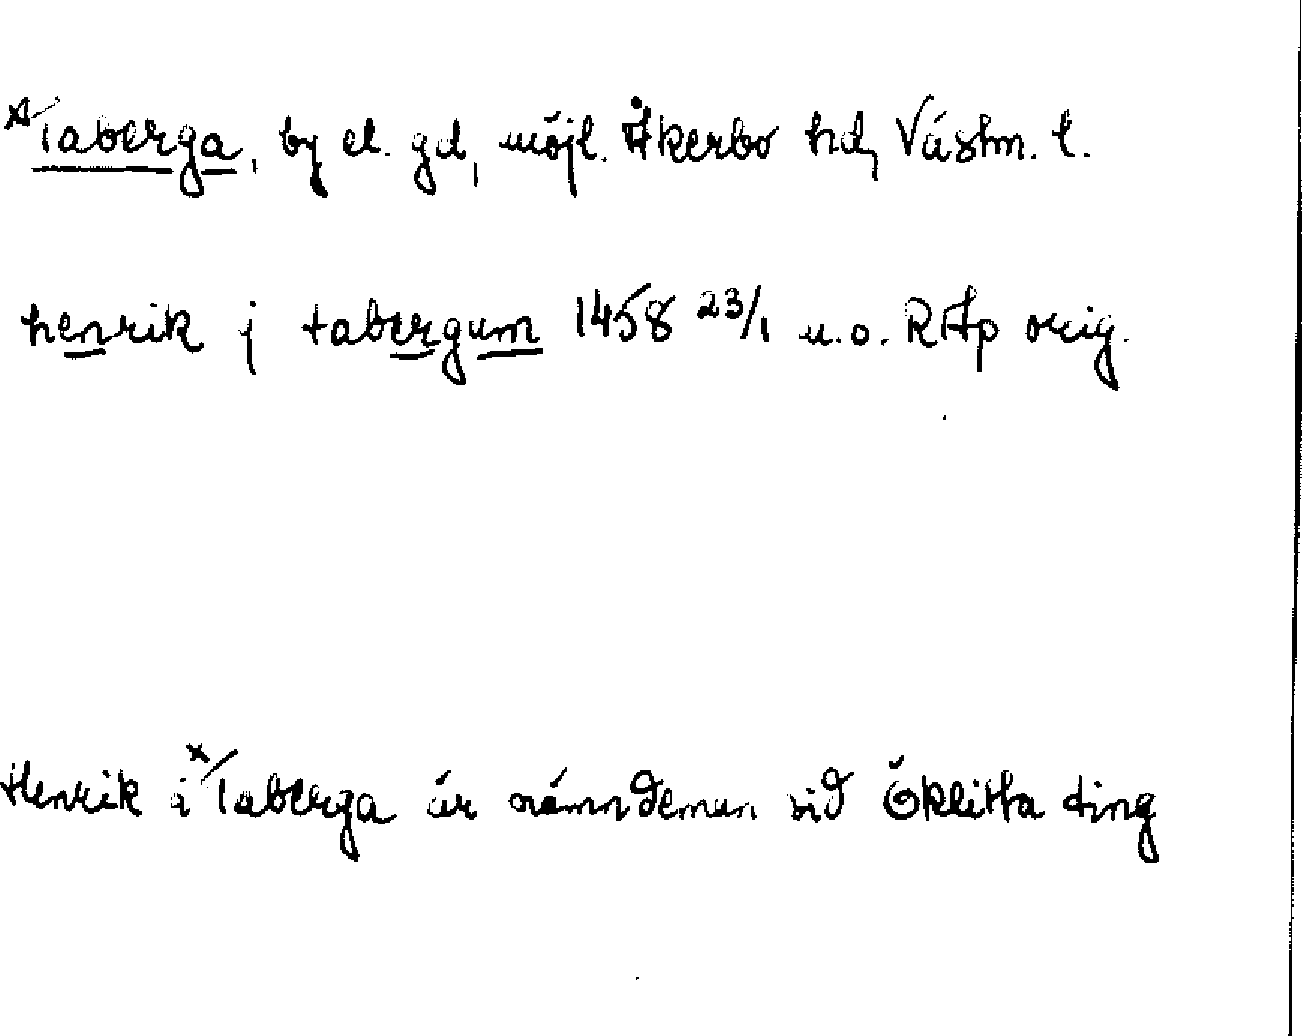 *Taberga, by el. gd, möjl. Åkerbo hd, Västm. l.
henrik j tabergum 1458 23/1 u.o. RAp orig.
Henrik i *Taberga är nämndeman vid Öklitta ting